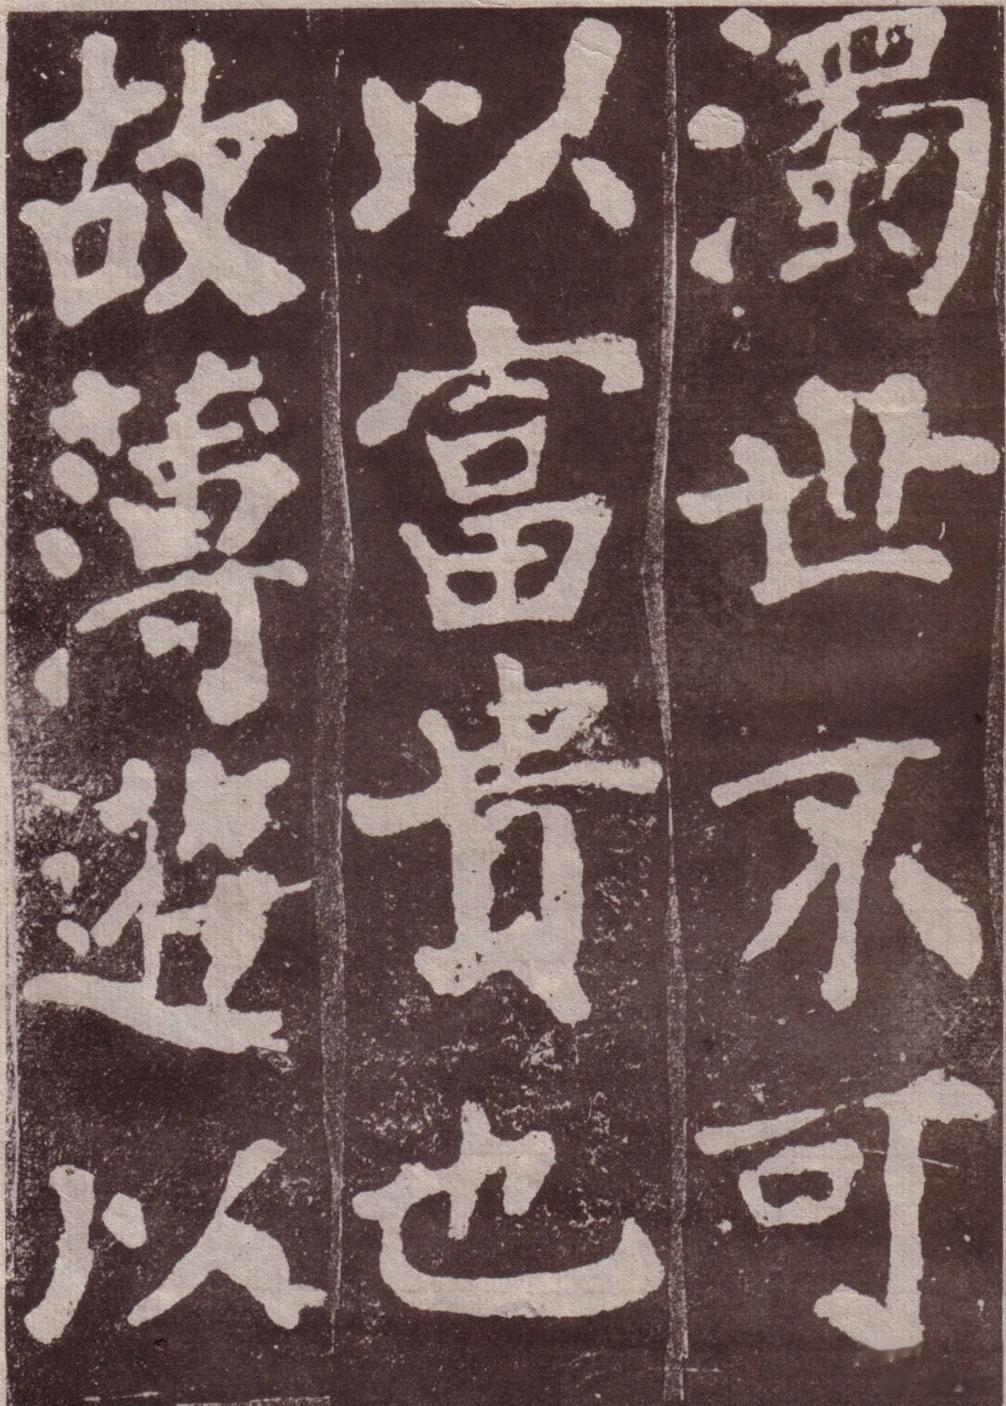 濁世不可
以富貴也
故薄遊以